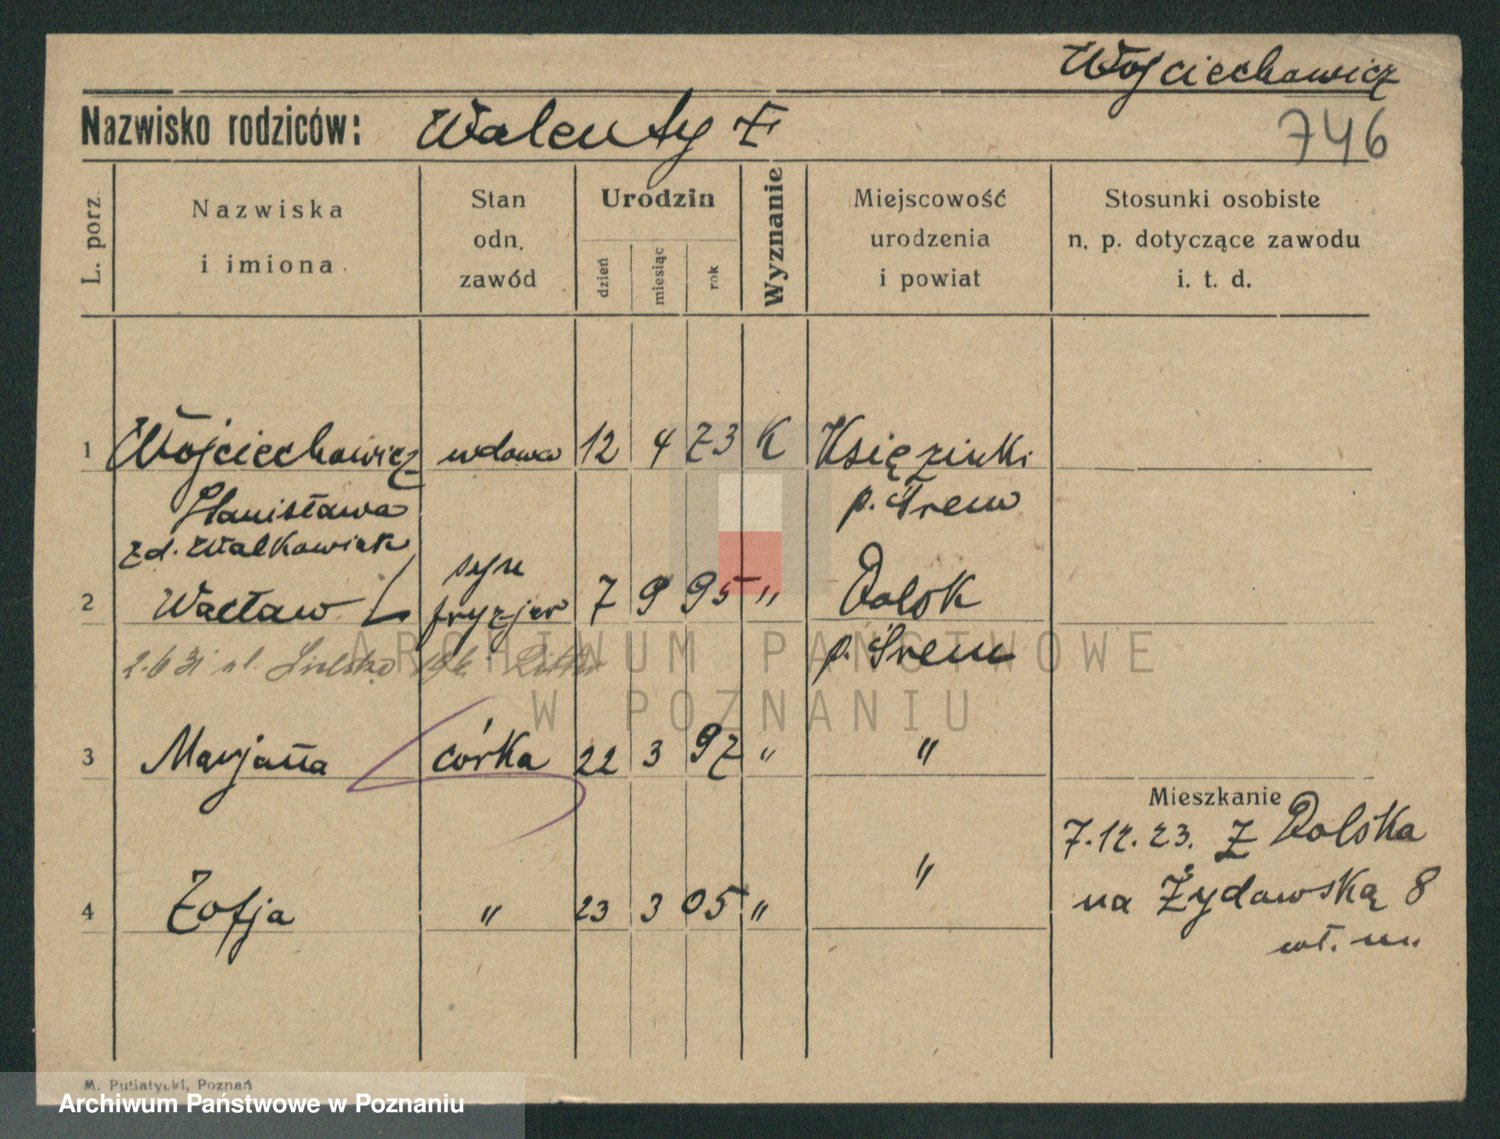 Wojciechowicz
Nazwisko rodziców: Walenty Ł
746
L. porz.
Nazwiska
i imiona
Stan
odn.
zawód
Urodzin
dzień
miesiąc
rok
Wyznanie
Miejscowość
urodzenia
i powiat
Stosunki osobiste
n. p. dotyczące zawodu
i. t. d.
1 Wojciechowicz wdowa 12 4 73 K Księginki
Stanisława p. Śrem
zd. Walkowiak
2 Wacław syn fryzjer 7 9 95 " Dolsk
p. Śrem
2.6 31
3 Marjanna córka 22 3 97 " "
Mieszkanie
7.12.23. Z Dolska
na Żydowską 8
wł. m.
4 Zofja " 23 3 05 " "
ARCHIWUM PAŃSTWOWE
W POZNANIU
M. Putiatycki, Poznań
Archiwum Państwowe w Poznaniu